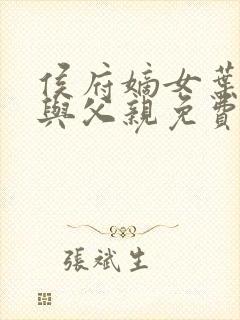 侯府嫡女葉
與父親免費
張斌生